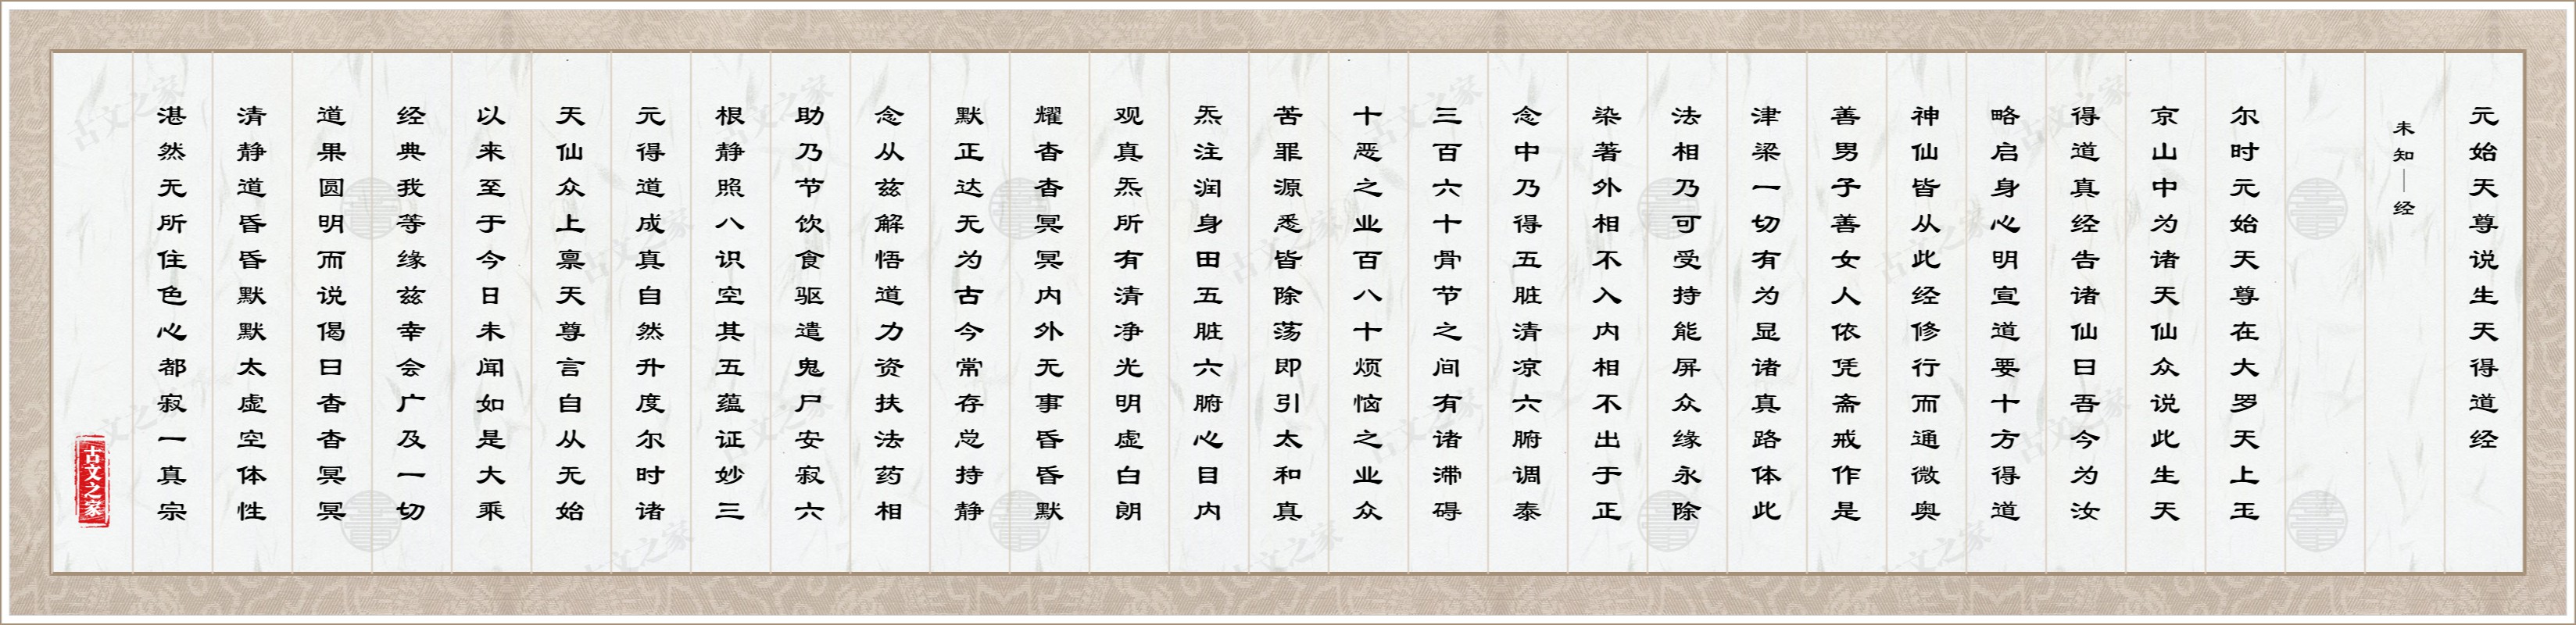 元始天尊说生天得道经
未知｜经
尔时元始天尊在大罗天上玉
京山中为诸天仙众说此生天
得道真经告诸仙曰吾今为汝
略启身心明宣道要十方得道
神仙皆从此经修行而通微奥
善男子善女人依凭斋戒作是
津梁一切有为显诸真路体此
法相乃可受持能屏众缘永除
染著外相不入内相不出于正
念中乃得五脏清凉六腑调泰
三百六十骨节之间有诸滞碍
十恶之业百八十烦恼之业众
苦罪源悉皆除荡即引太和真
炁注润身田五脏六腑心目内
观真炁所有清净光明虚白朗
耀杳杳冥冥内外无事昏昏默
默正达无为古今常存总持静
念从兹解悟道力资扶法药相
助乃节饮食驱遣鬼尸安寂六
根静照八识空其五蕴证妙三
元得道成真自然升度尔时诸
天仙众上禀天尊言自从无始
以来至于今日未闻如是大乘
经典我等缘兹幸会广及一切
道果圆明而说偈曰杳杳冥冥
清静道昏昏默默太虚空体性
湛然无所住色心都寂一真宗
古文之家